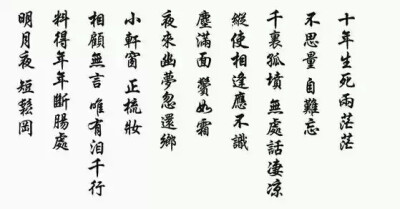 十年生死兩茫茫
不思量 自難忘
千裏孤墳 無處話淒涼
縱使相逢應不識
塵滿面 鬢如霜
夜來幽夢忽還鄉
小軒窗 正梳妝
相顧無言 唯有淚千行
料得年年斷腸處
明月夜 短鬆岡